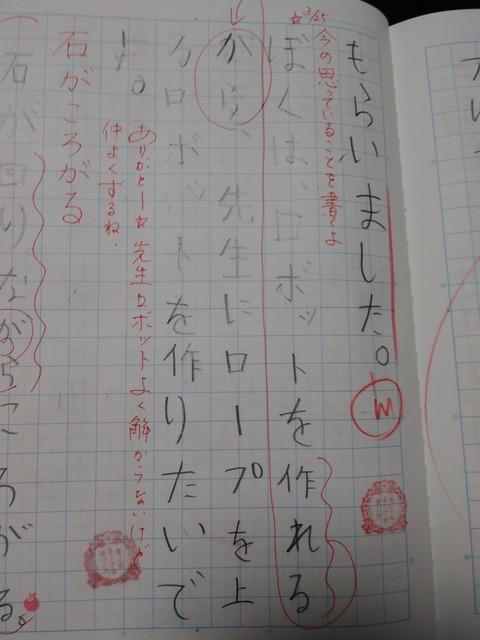 もらいました。 M
☆3/25 今の思っていることを書くよ
ぼくは、ロボットを作れる
から、先生にロープを上
るロボットを作りたいで
す。
ありがとー☆先生ロボットよく解からないけど
仲よくするね.
石がころがる
石が回りながらころがる。